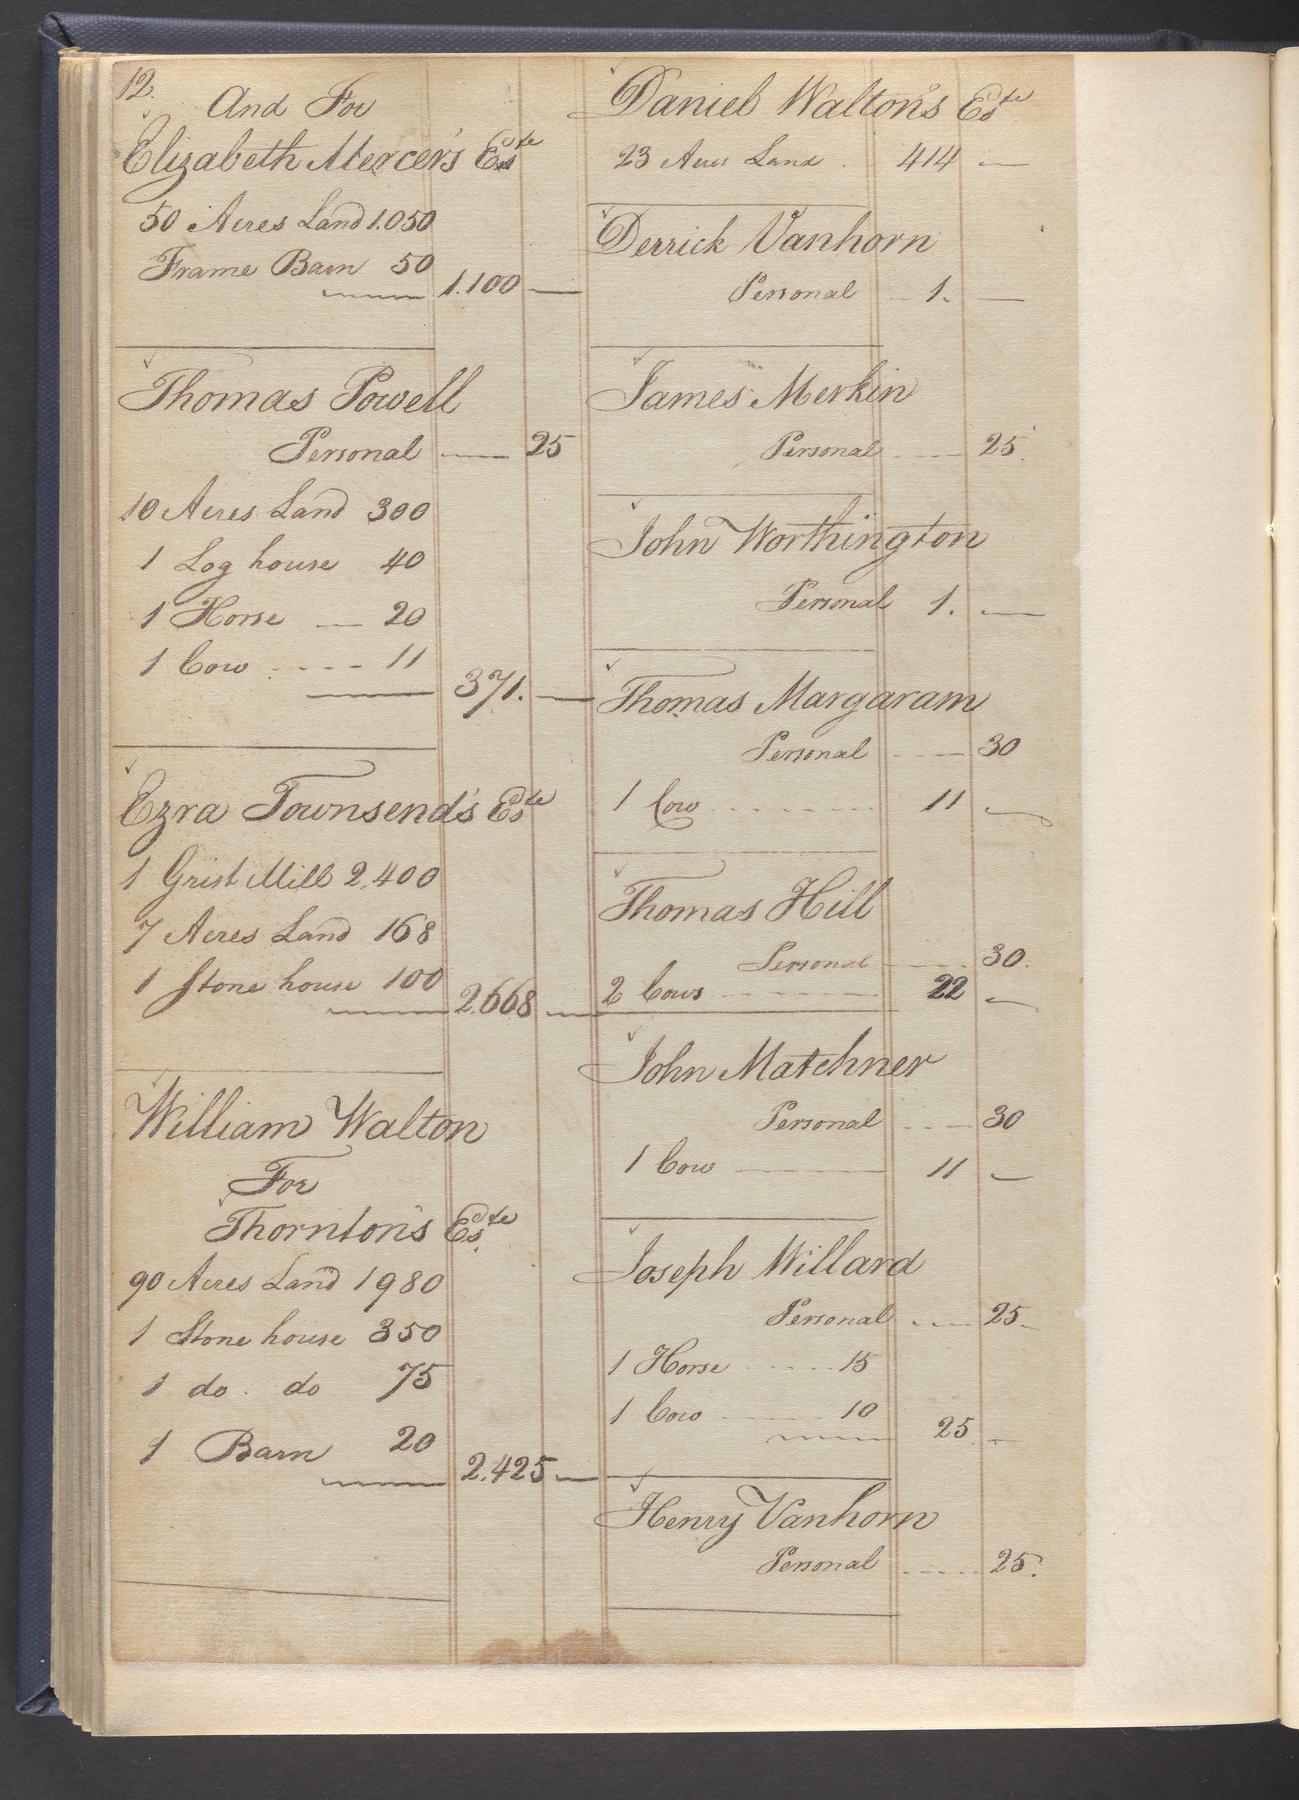 12.
And For
Elizabeth Mercer's Este
50 Acres Land 1.050
Frame Barn 50
1.100 —
Thomas Powell
Personal — 25
10 Acres Land 300
1 Log house 40
1 Horse — 20
1 Cow - - - - 11
371. —
Ezra Townsend's Este
1 Grist Mill 2.400
7 Acres Land 168
1 Stone house 100
2.668 —
William Walton
For
Thornton's Este
90 Acres Land 1980
1 Stone house 350
1 do. do 75
1 Barn 20
2.425 —
Daniel Walton's Este
23 Acres Land . 414 —
Derrick Vanhorn
Personal - 1. —
James Merkin
Personal - - - - 25.
John Worthington
Personal 1. —
Thomas Margaram
Personal - - - - 30
1 Cow - - - - - - - 11 —
Thomas Hill
Personal - - - - 30.
2 Cows - - - - - - 22 —
John Matchner
Personal - - - - 30
1 Cow — 11 —
Joseph Willard
Personal - - - - 25.
1 Horse - - - - - 15
1 Cow - - - - - - 10
25. —
Henry Vanhorn
Personal - - - - - 25.